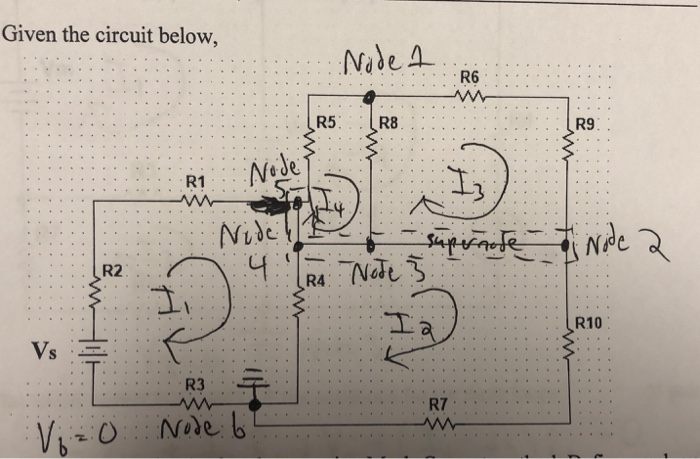 Given the circuit below,
Node 1
R6
R5
R8
R9
Node
5
R1
I4
I3
Node
4
supernode
Node 2
R2
I1
R4
Node 3
I2
R10
Vs
R3
R7
V6 = 0
Node 6